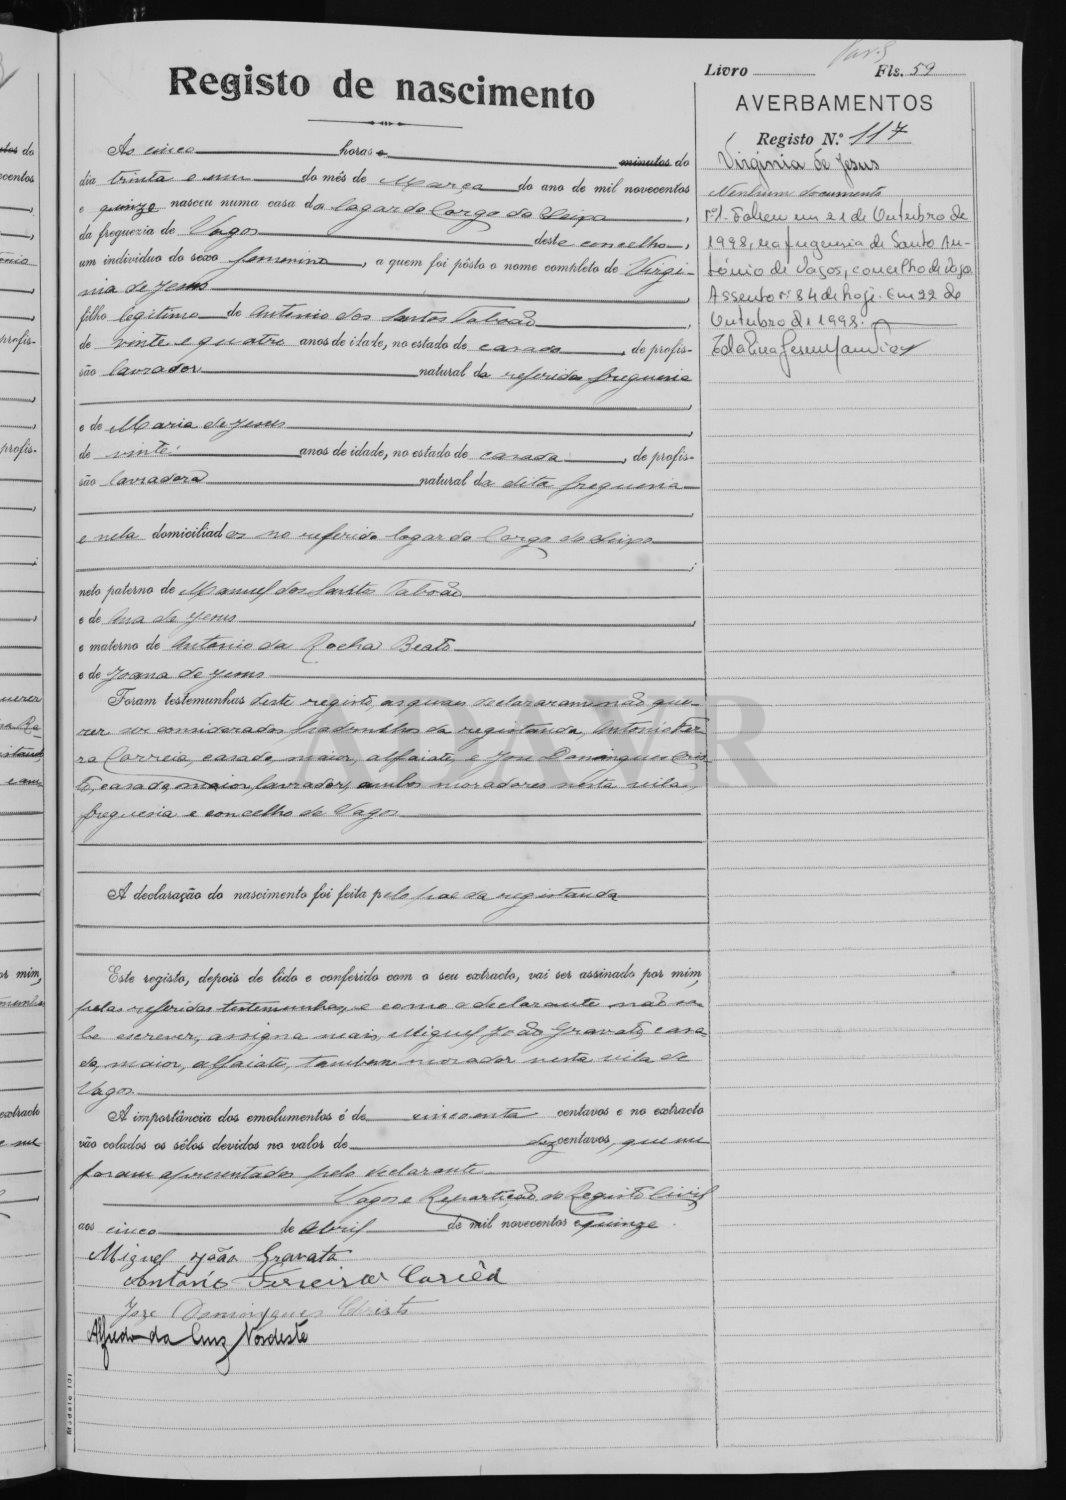 Registo de nascimento
Ás cinco horas e minutos do
dia trinta e um do mês de Março do ano de mil novecentos
e quinze nasceu numa casa do lagar do Corgo do Seixo,
da freguezia de Vagos deste concelho,
um individuo do sexo femenino, a quem foi pôsto o nome completo de Virgi-
nia de Jesus,
filho legitimo de Antonio dos Santos Taboão,
de vinte e quatro anos de idade, no estado de casado, de profis-
são lavrador natural da referida freguesia
,
e de Maria de Jesus,
de vinte anos de idade, no estado de casada, de profis-
são lavradora natural da dita freguesia
,
e nela domiciliados no referido lagar do Corgo do Seixo
;
neto paterno de Manuel dos Santos Taboão
e de Ana de Jesus,
e materno de Antonio da Rocha Beato
e de Joana de Jesus
Foram testemunhas deste registo, as quaes declararam não que-
rer ser considerados padrinhos da registanda, Antonio Ferrei-
ra Correia, casado, maior, alfaiate, e José Domingues Cris-
to, casado, maior, lavrador, ambos moradores nesta vila,
freguesia e concelho de Vagos
A declaração do nascimento foi feita pelo pae da registanda
Este registo, depois de lido e conferido com o seu extracto, vai ser assinado por mim,
pelas referidas testemunhas, e como o declarante não sa-
be escrever, assigna mais, Miguel João Gravato, casa-
do, maior, alfaiate, tambem morador nesta vila de
Vagos
A importância dos emolumentos é de cincoenta centavos e no extracto
vão colados os sêlos devidos no valor de dez centavos, que me
foram apresentados pelo declarante
Vagos e Repartição do Registo Civil
aos cinco de Abril de mil novecentos e quinze.
Miguel João Gravato
António Ferreira Corrêa
Joze Domingues Christo
Alfredo da Cruz Nordeste
Modelo 101
Livro Fls. 59
AVERBAMENTOS
Registo N.º 117
Virginia de Jesus
Nenhum documento
nº1 Faleceu em 21 de Outubro de
1998, na freguesia de Santo An-
tónio de Vagos, concelho de Vagos.
Assento nº 84 de hoje. Em 22 de
Outubro de 1998.
ADAVR